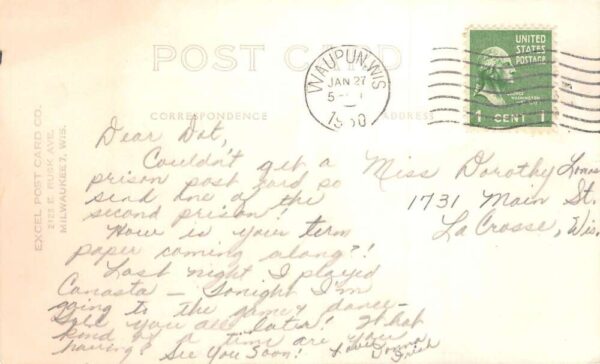 POST CARD
WAUPUN, WIS.
JAN 27
1950
UNITED
STATES
POSTAGE
1 CENT 1
CORRESPONDENCE
ADDRESS
EXCEL POST CARD CO.
2123 E. RUSK AVE.
MILWAUKEE 7, WIS.
Dear Dot,
Couldn't get a
prison post card so
send one of the
second prison!
How is your term
paper coming along?!
Last night I played
Canasta – tonight I'm
going to the game & dance –
Tell you all later! What
kind of a time are you
having? See You Soon!
Love Donna
Miss Dorothy
1731 Main St.
La Crosse, Wis.